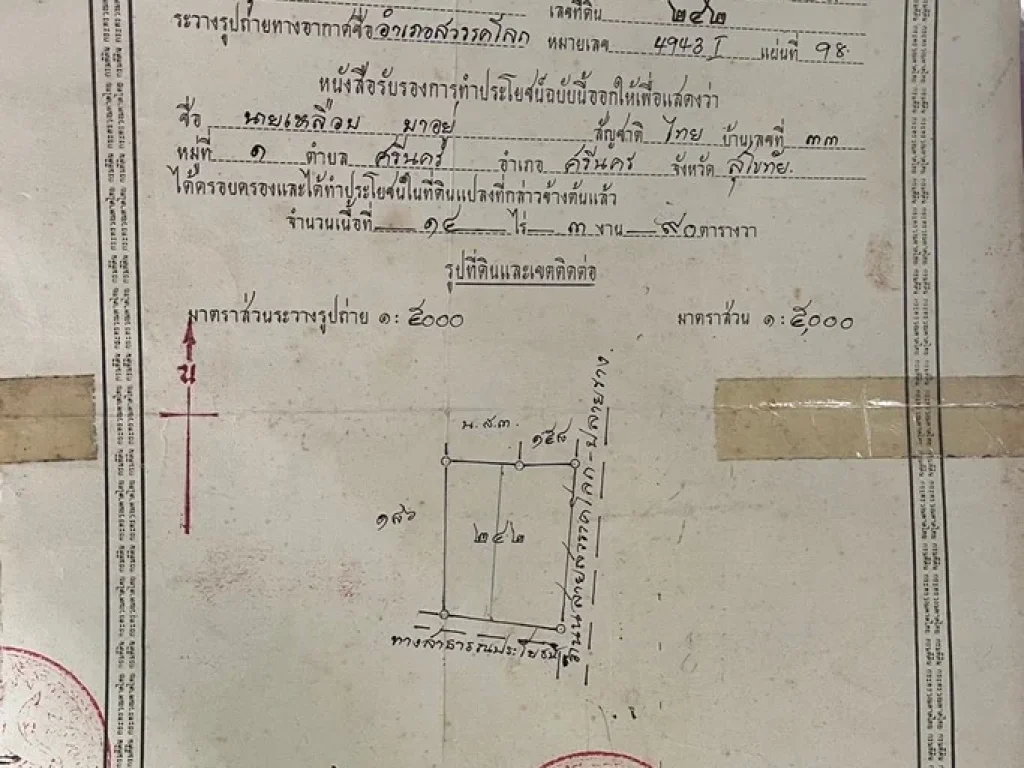 เลขที่ดิน ๒๔๒
ระวางรูปถ่ายทางอากาศชื่อ อำเภอสวรรคโลก หมายเลข 4943 I แผ่นที่ 98
หนังสือรับรองการทำประโยชน์ฉบับนี้ออกให้เพื่อแสดงว่า
ชื่อ นายเหลือบ มาอยู่ สัญชาติ ไทย บ้านเลขที่ ๓๓
หมู่ที่ ๑ ตำบล ศรีนคร อำเภอ ศรีนคร จังหวัด สุโขทัย.
ได้ครอบครองและได้ทำประโยชน์ในที่ดินแปลงที่กล่าวข้างต้นแล้ว
จำนวนเนื้อที่ ๑๔ ไร่ ๓ งาน ๙๐ ตารางวา
รูปที่ดินและเขตติดต่อ
มาตราส่วนระวางรูปถ่าย ๑ : ๕๐๐๐ มาตราส่วน ๑ : ๕,๐๐๐
น
น.ส.๓.
๑๕๘
๒๔๒
ทางสาธารณประโยชน์